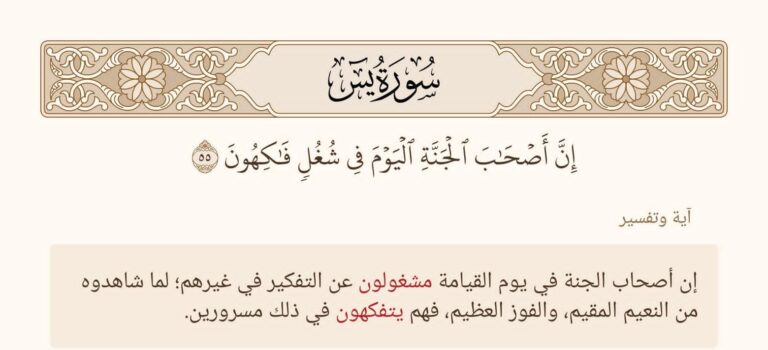 سُورَةُ يسٓ
إِنَّ أَصۡحَٰبَ ٱلۡجَنَّةِ ٱلۡيَوۡمَ فِي شُغُلٖ فَٰكِهُونَ ٥٥
آية وتفسير
إن أصحاب الجنة في يوم القيامة مشغولون عن التفكير في غيرهم؛ لما شاهدوه
من النعيم المقيم، والفوز العظيم، فهم يتفكهون في ذلك مسرورين.